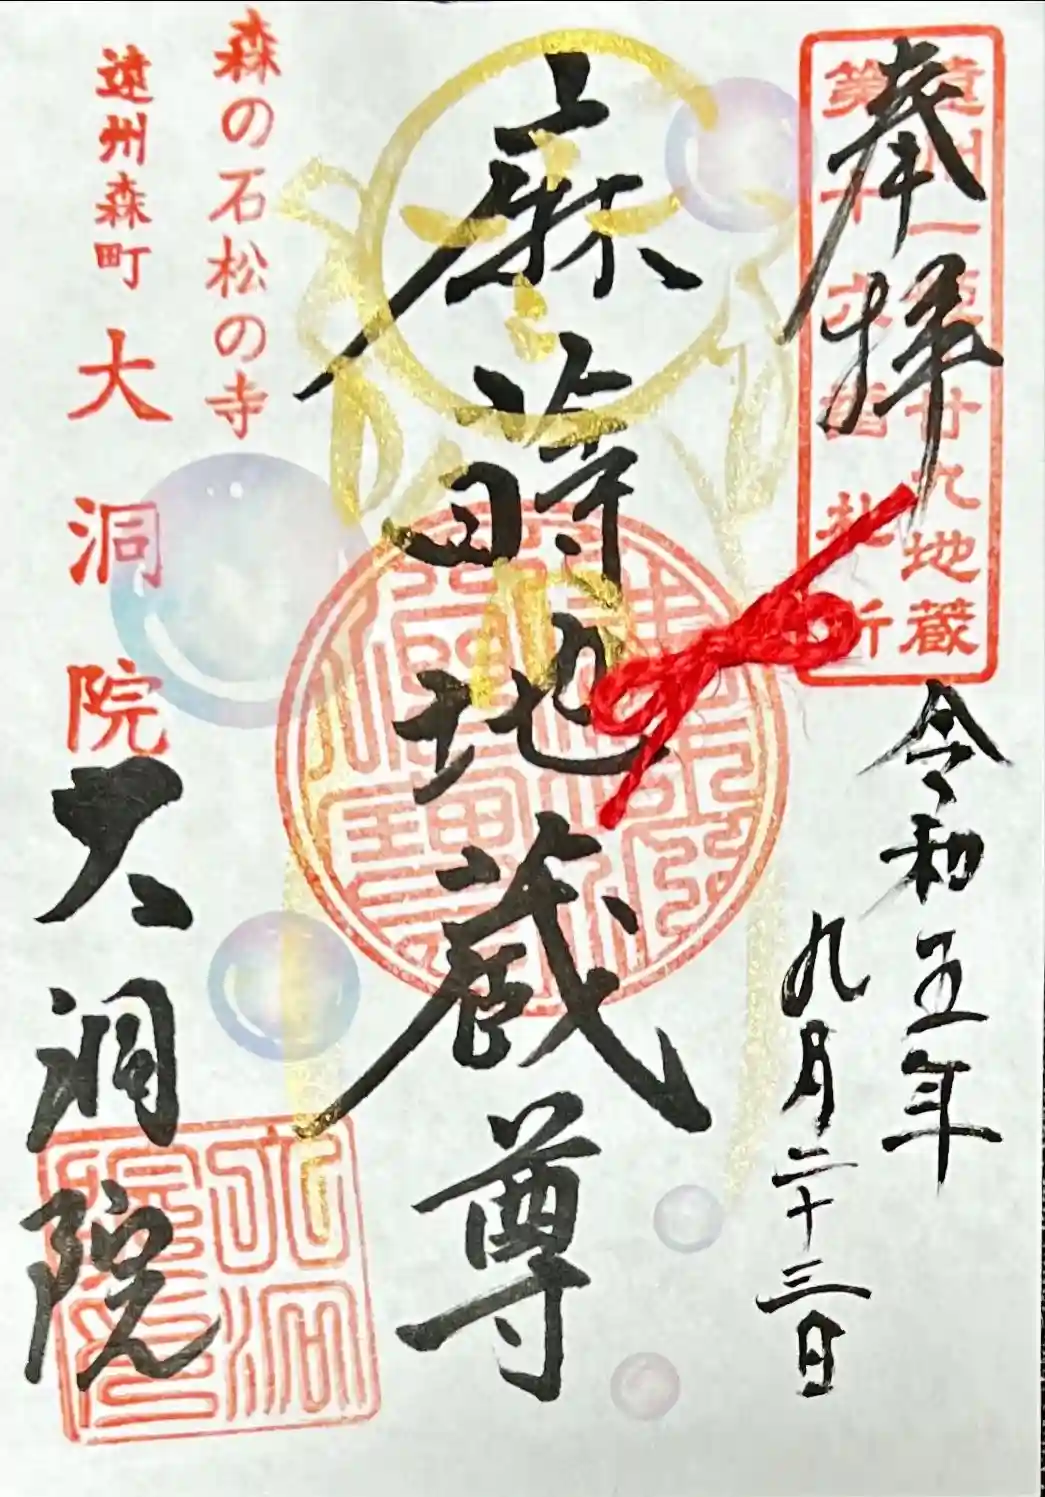 奉拝
遠州一 廿九地蔵
第十 番札所
令和五年
九月二十三日
麻蒔地蔵尊
森の石松の寺
遠州森町 大洞院
大洞院